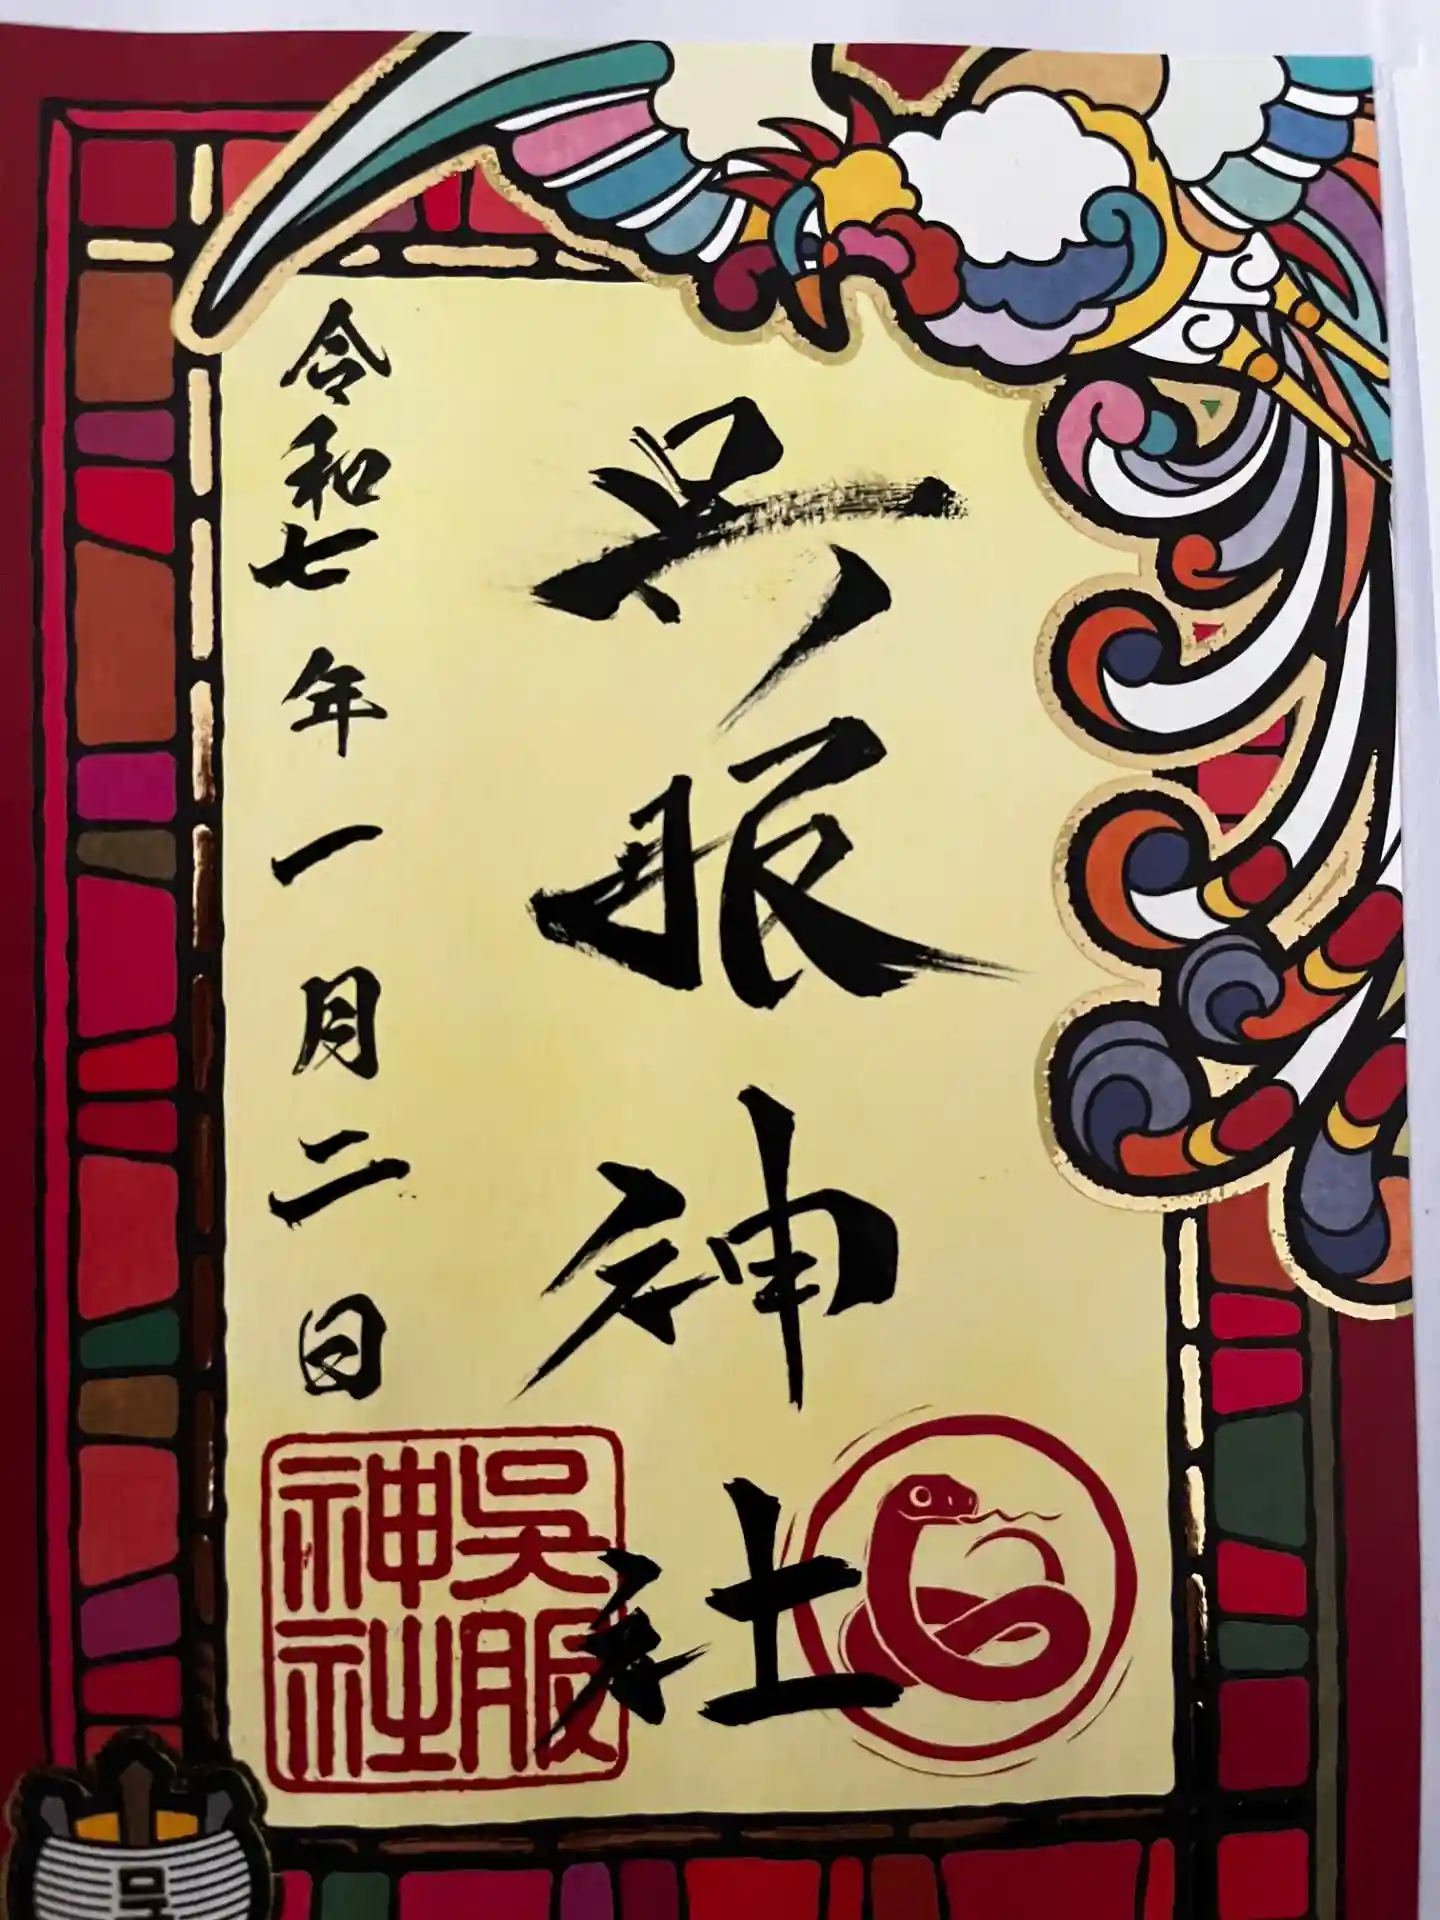 呉服神社
令和七年一月二日
吳服
神社
呉